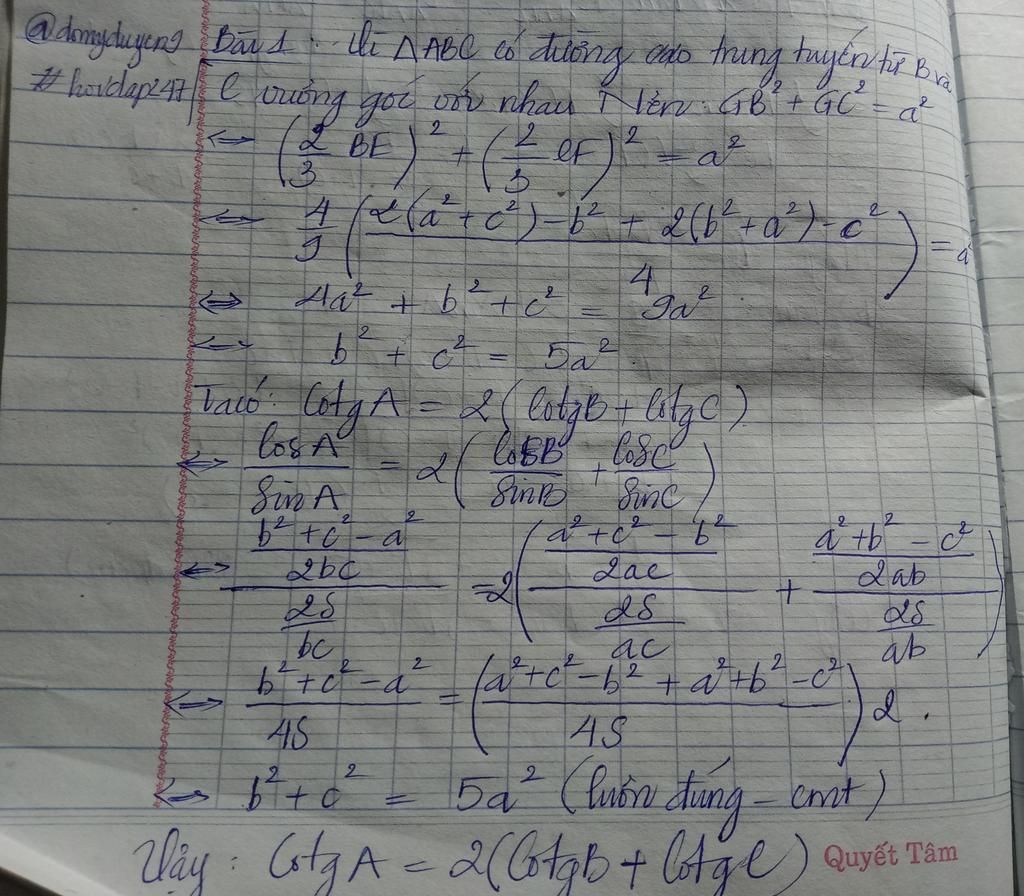 @domyduyen9
#hoidap247
Bài 1: Vì ΔABC có đường cao trung tuyến từ B và
C vuông góc với nhau Nên: GB² + GC² = a²
⇔ (2/3 BE)² + (2/3 CF)² = a²
⇔ 4/9 ((2(a² + c²) - b² + 2(b² + a²) - c²)/4) = a²
⇔ 4a² + b² + c² = 9a²
⇔ b² + c² = 5a²
Ta có: CotgA = 2(CotgB + CotgC)
⇔ CosA/SinA = 2(CosB/SinB + CosC/SinC)
⇔ ((b² + c² - a²)/2bc)/(2S/bc) = 2(((a² + c² - b²)/2ac)/(2S/ac) + ((a² + b² - c²)/2ab)/(2S/ab))
⇔ (b² + c² - a²)/4S = ((a² + c² - b² + a² + b² - c²)/4S) 2.
⇔ b² + c² = 5a² (luôn đúng - cmt)
Vậy: CotgA = 2(CotgB + CotgC)
Quyết Tâm